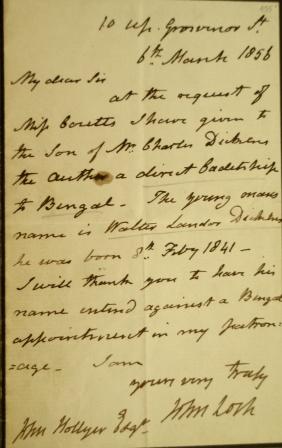 10 up. Grosvenor St.
6th March 1856
My dear Sir
at the request of
Miss Coutts I have given to
the Son of Mr. Charles Dickens
the author a direct Cadetship
to Bengal - The young man's
name is Walter Landor Dickens
he was born 8th Feby 1841 -
I will thank you to have his
name entered against a Bengal
appointment in my patron-
=age. I am
yours very truly
John Loch
John Hollyer Esqr.